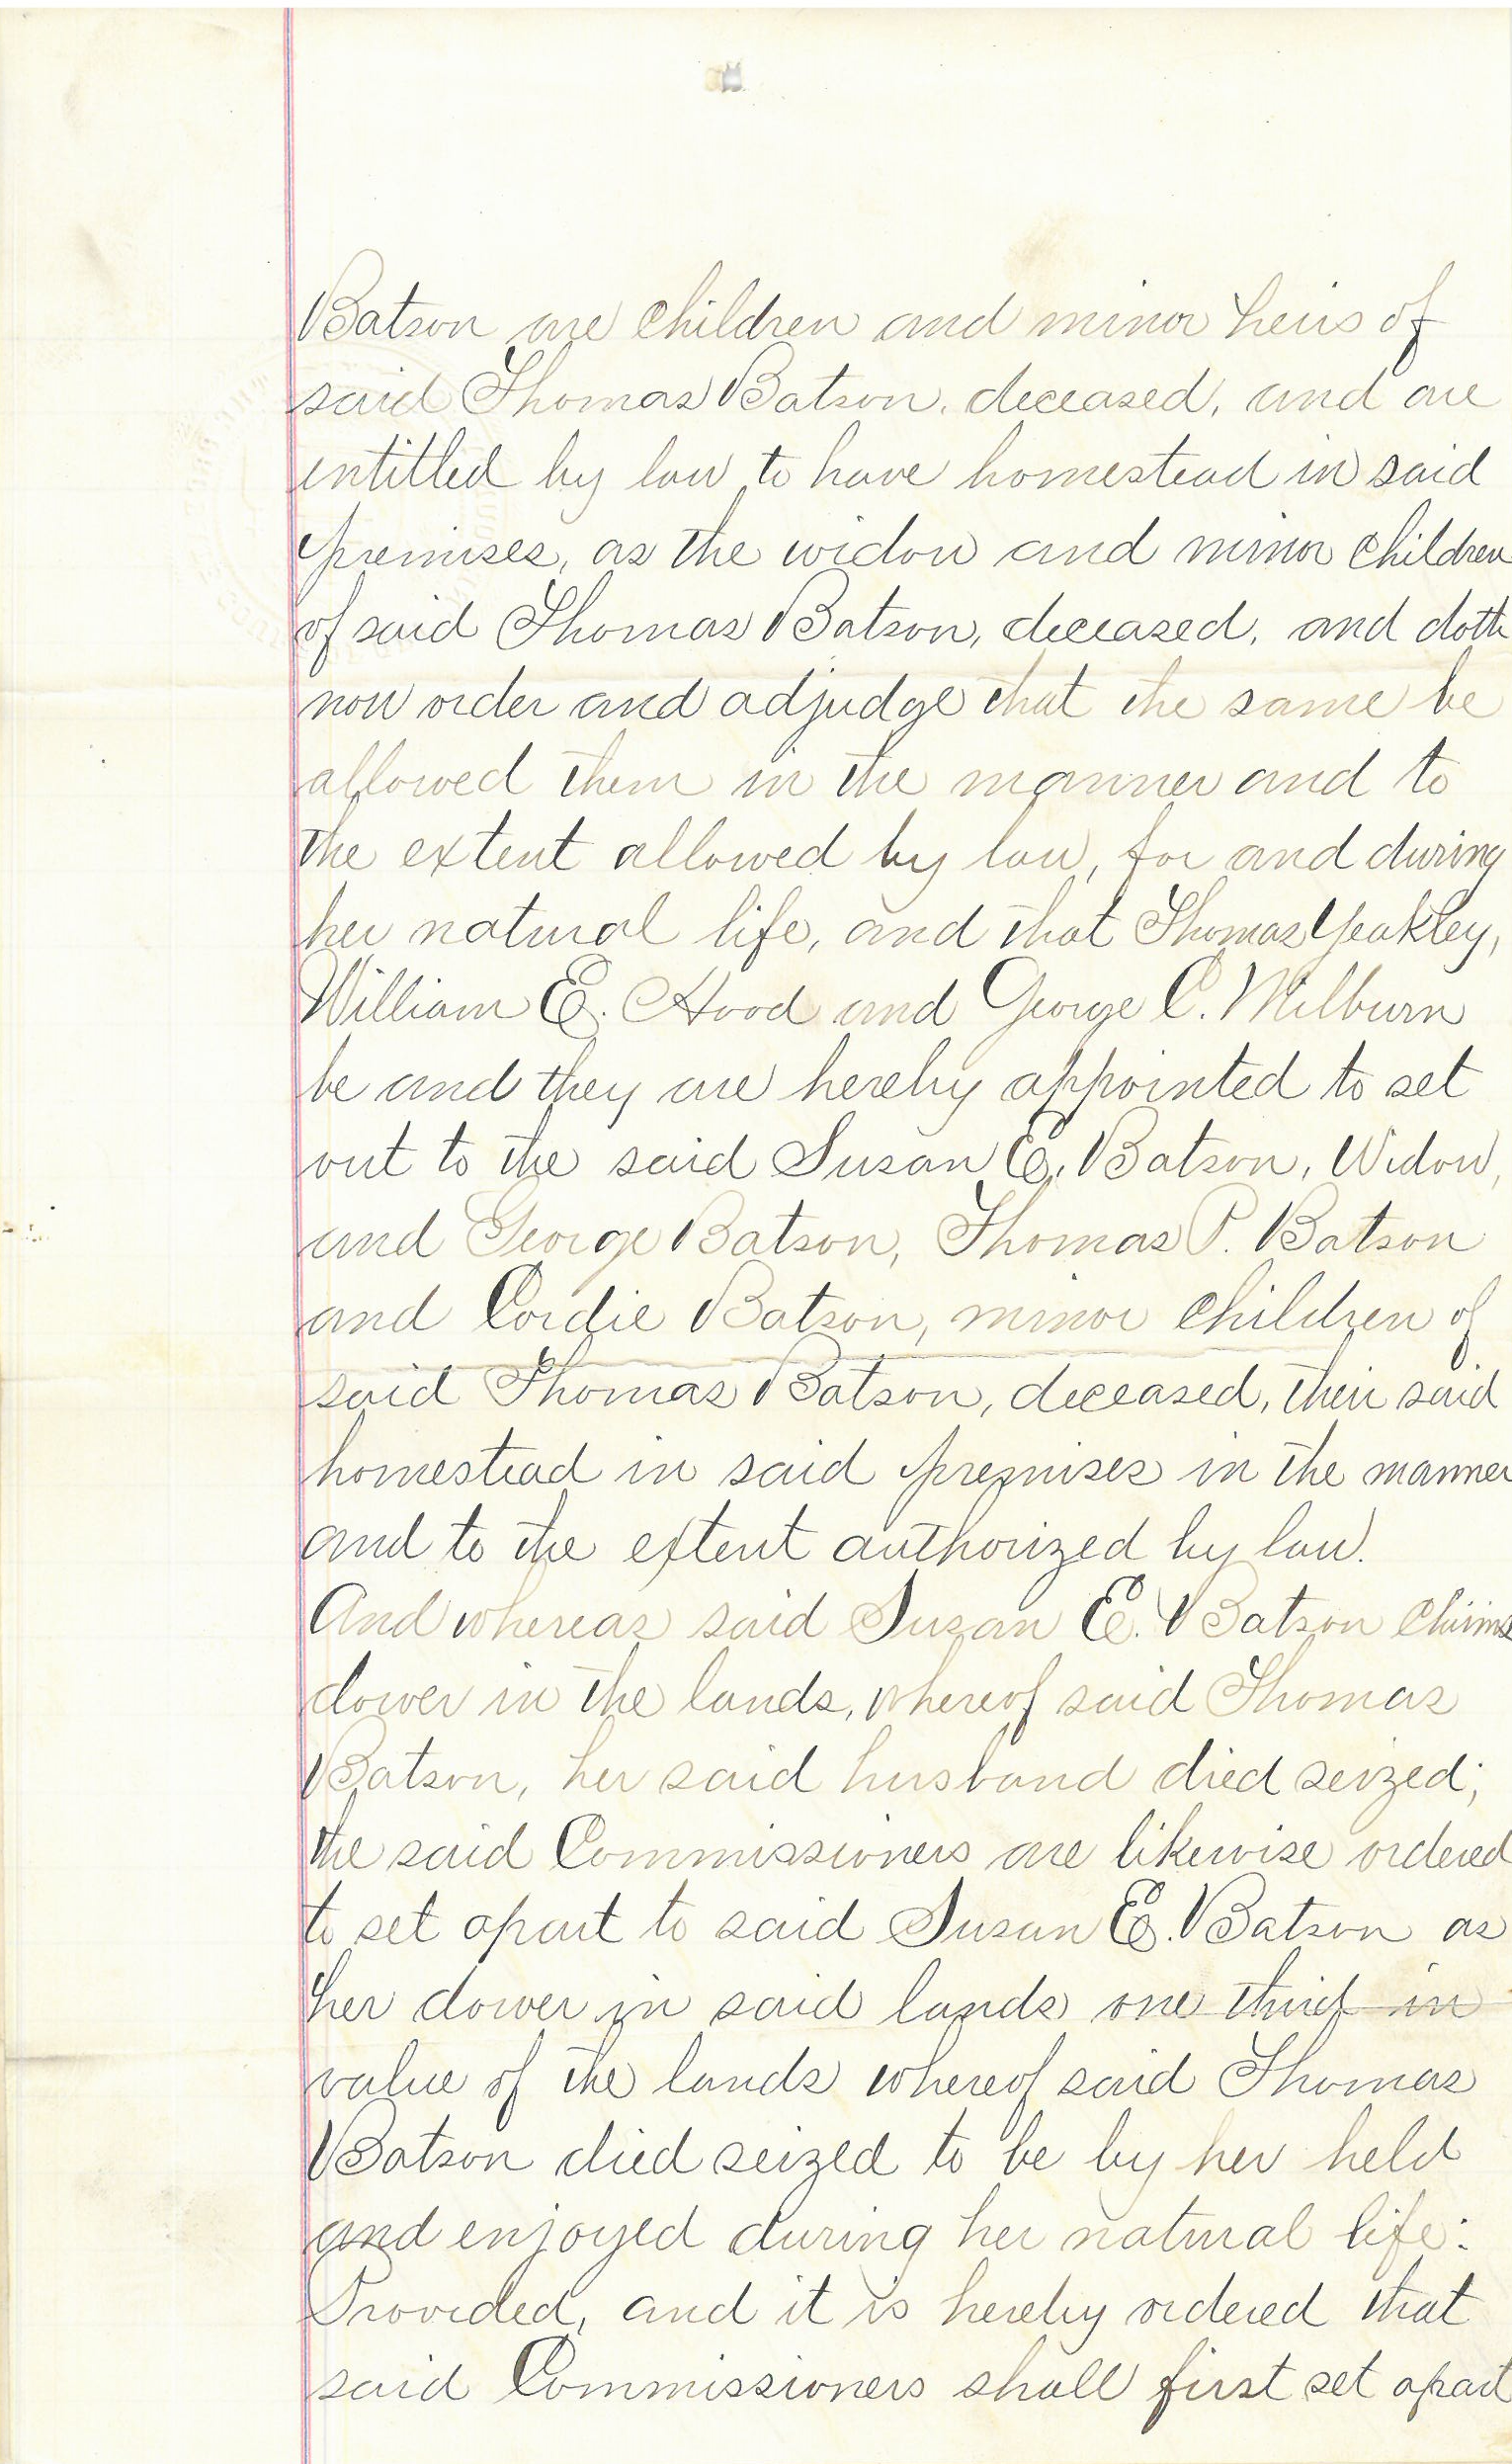 Batson are children and minor heirs of
said Thomas Batson, deceased, and are
entitled by law to have homestead in said
premises, as the widow and minor children
of said Thomas Batson, deceased, and doth
now order and adjudge that the same be
allowed them in the manner and to
the extent allowed by law, for and during
her natural life, and that Thomas Yeakley,
William E. Hood and George C. Milburn
be and they are hereby appointed to set
out to the said Susan E. Batson, Widow,
and George Batson, Thomas P. Batson
and Cordie Batson, minor children of
said Thomas Batson, deceased, their said
homestead in said premises in the manner
and to the extent authorized by law.
And whereas said Susan E. Batson claims
dower in the lands, whereof said Thomas
Batson, her said husband died seized;
the said Commissioners are likewise ordered
to set apart to said Susan E. Batson as
her dower in said lands one third in
value of the lands whereof said Thomas
Batson died seized to be by her held
and enjoyed during her natural life:
Provided, and it is hereby ordered that
said Commissioners shall first set apart